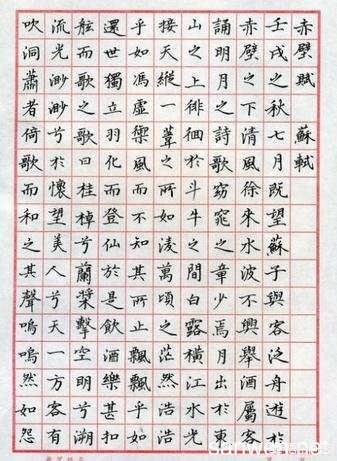 赤壁賦 蘇軾
壬戌之秋七月既望蘇子與客泛舟遊於
赤壁之下清風徐來水波不興舉酒屬客
誦明月之詩歌窈窕之章少焉月出於東
山之上徘徊於斗牛之間白露橫江水光
接天縱一葦之所如淩萬頃之茫然浩浩
乎如馮虛禦風而不知其所止飄飄乎如
還世獨立羽化而登仙於是飲酒樂甚扣
舷而歌之歌曰桂棹兮蘭槳擊空明兮溯
流光渺渺兮於懷望美人兮天一方客有
吹洞蕭者倚歌而和之其聲嗚嗚然如怨